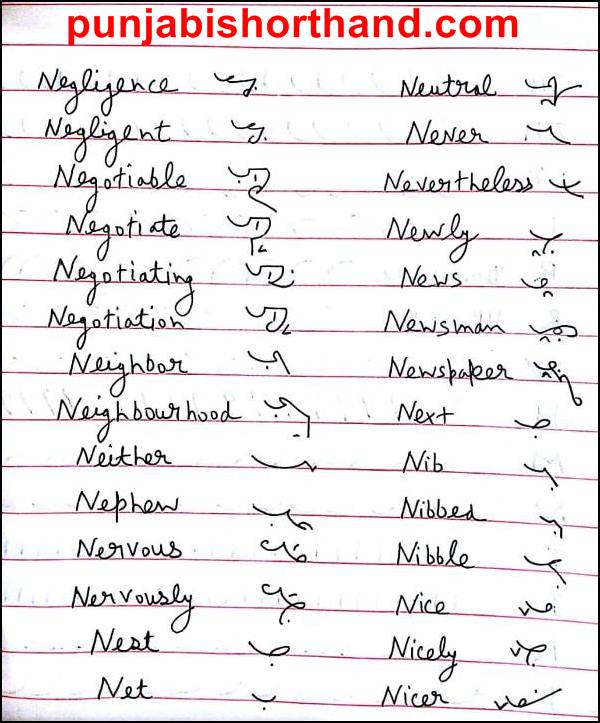 punjabishorthand.com
Negligence Neutral
Negligent Never
Negotiable Nevertheless
Negotiate Newly
Negotiating News
Negotiation Newsman
Neighbor Newspaper
Neighbourhood Next
Neither Nib
Nephew Nibbed
Nervous Nibble
Nervously Nice
Nest Nicely
Net Nicer